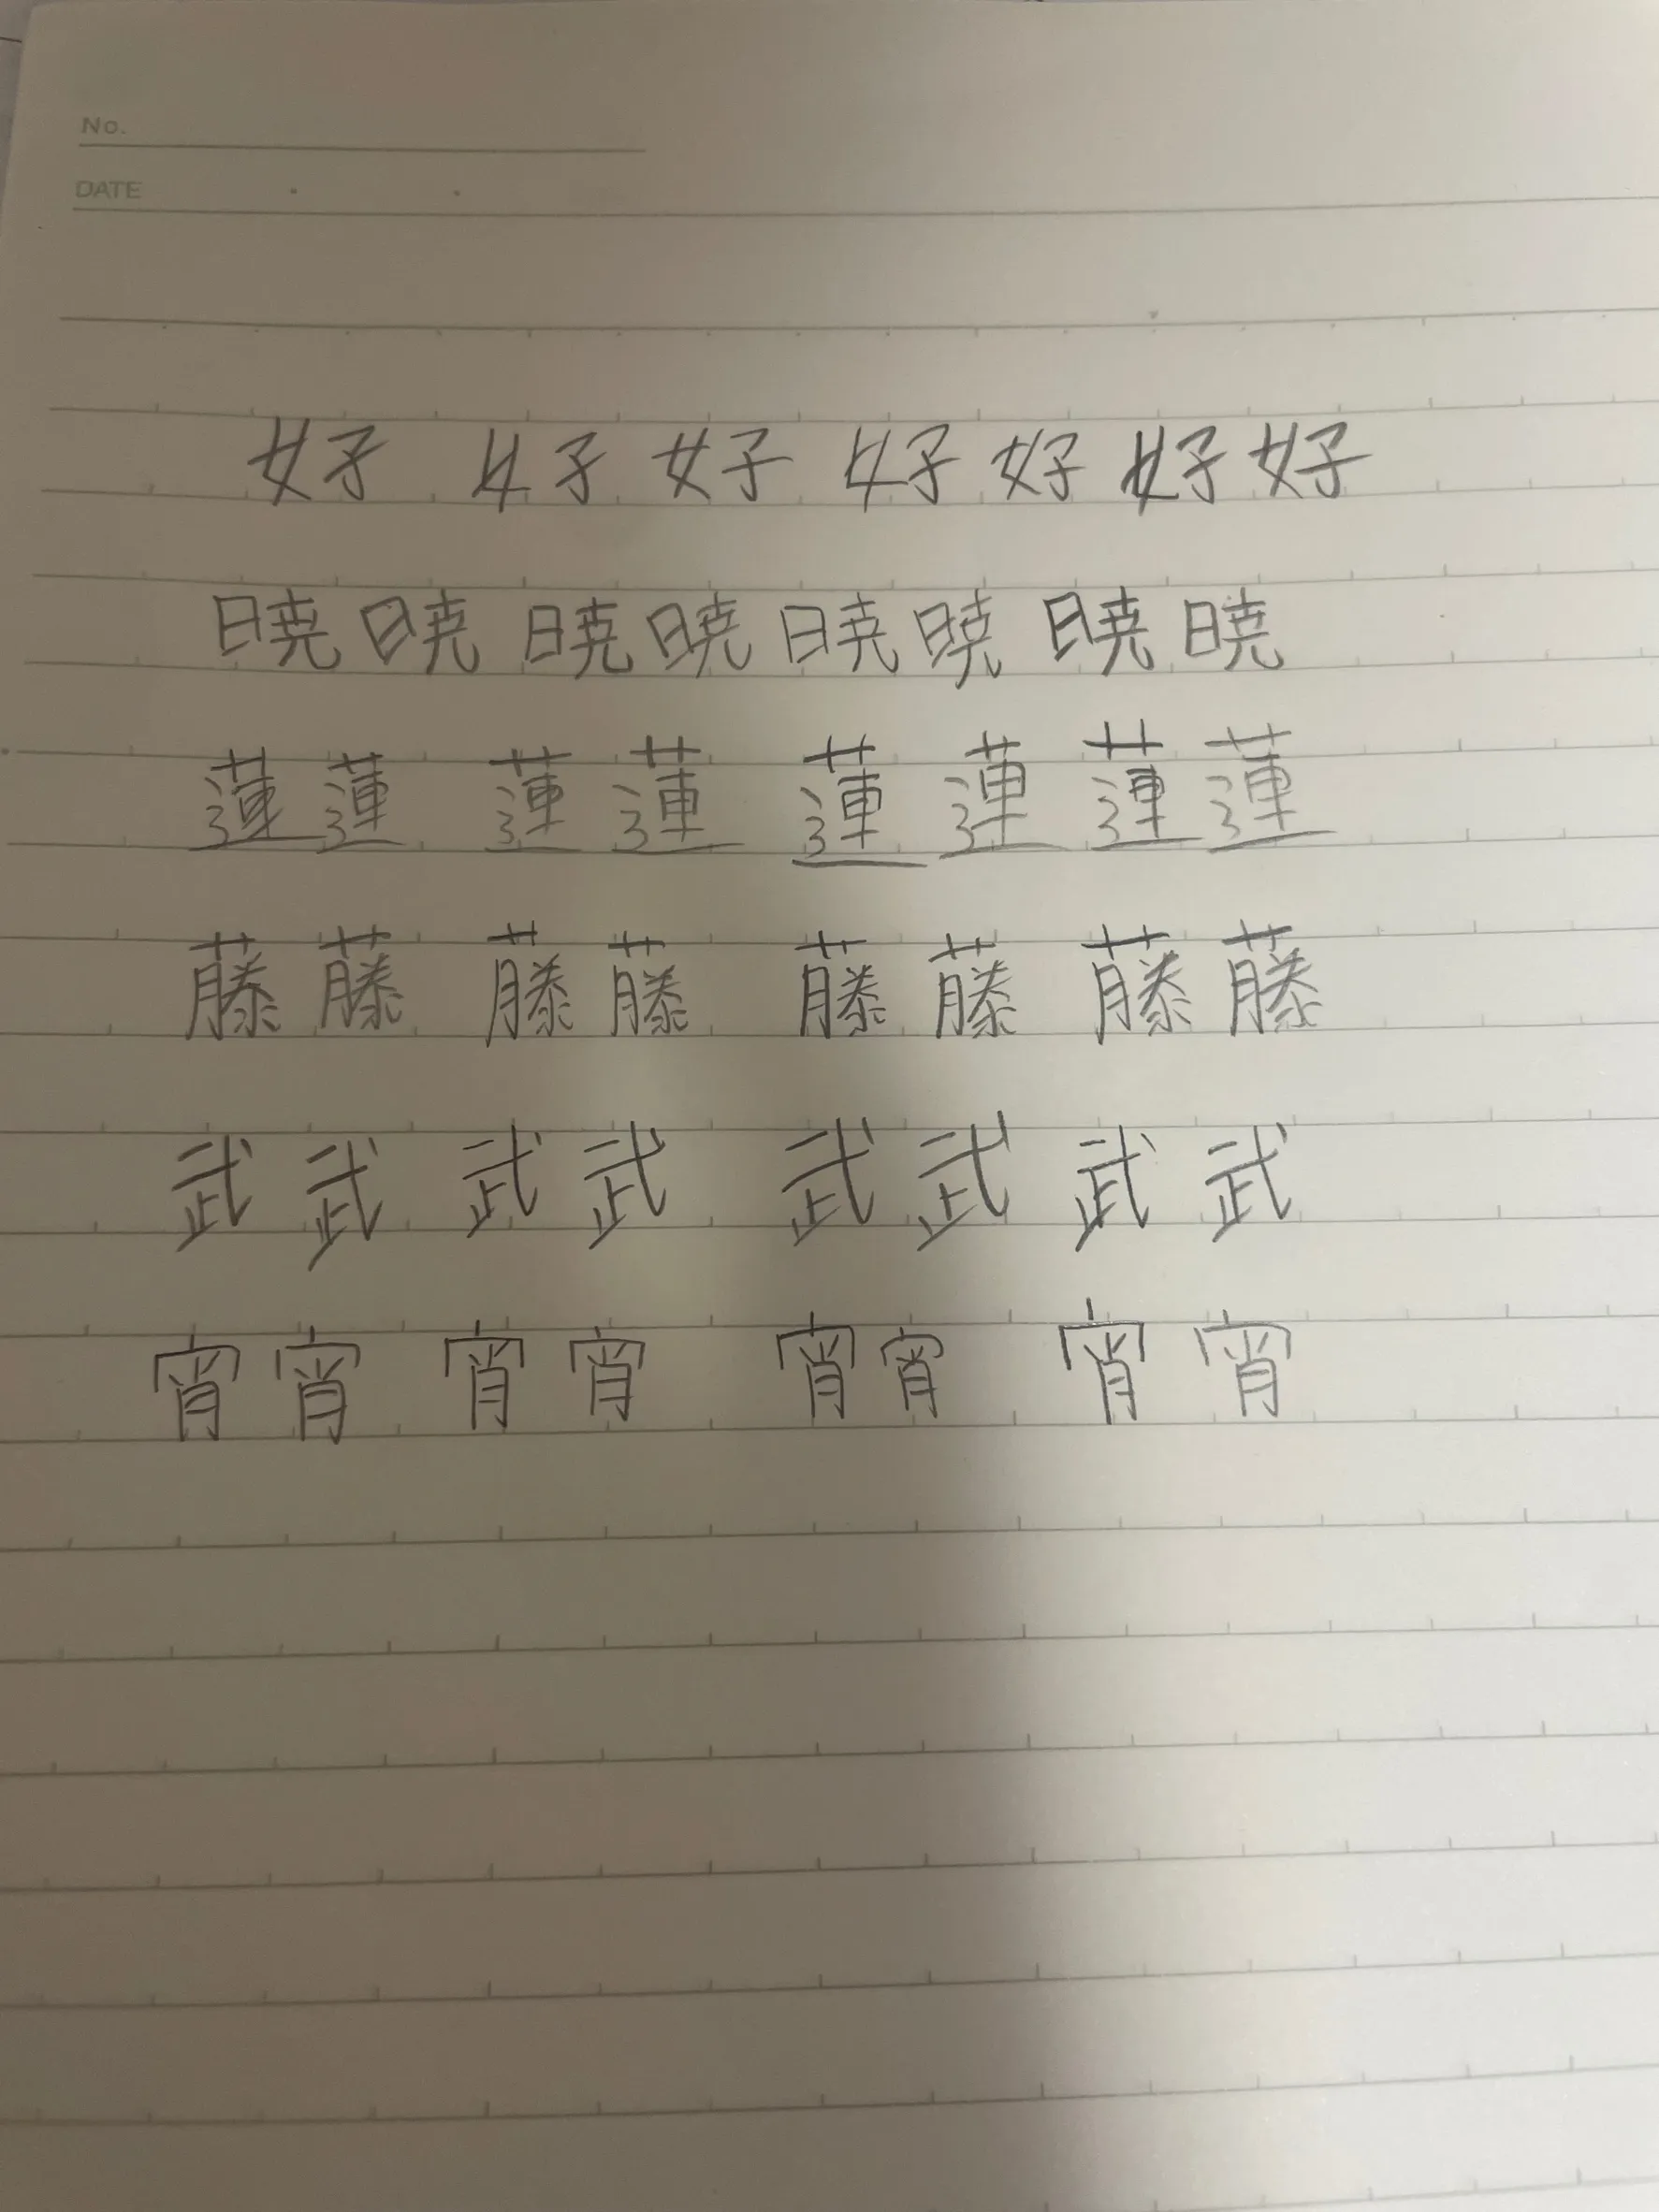 No.
DATE
好 好 好 好 好 好 好
暁 暁 暁 暁 暁 暁 暁 暁
蓮 蓮 蓮 蓮 蓮 蓮 蓮 蓮
藤 藤 藤 藤 藤 藤 藤 藤
武 武 武 武 武 武 武 武
宵 宵 宵 宵 宵 宵 宵 宵